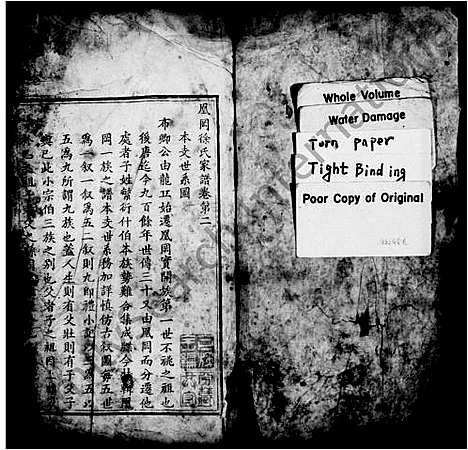 鳳岡徐氏家譜卷第二
本支世系圖
布卿公由龍工始遷鳳岡實開族第一世不祧之祖也
後唐起今九百餘年世傳三十又由鳳岡而分遷他
處者子姓繁衍什伯本族勢難合集成牒今
岡一族之譜本支世系務加詳慎仿古叙圖每五世
為一叙一叙為五二叙則九即禮小記以三為五以
五為九所謂九族也蓋人生則有父壯則有子父子
與己此小宗伯三族之别也父者子之祖因
Whole Volume
Water Damage
Torn Paper
Tight Binding
Poor Copy of Original